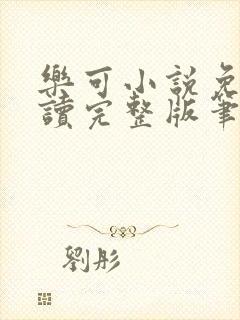 樂可小説免
讀完整版筆
劉彤